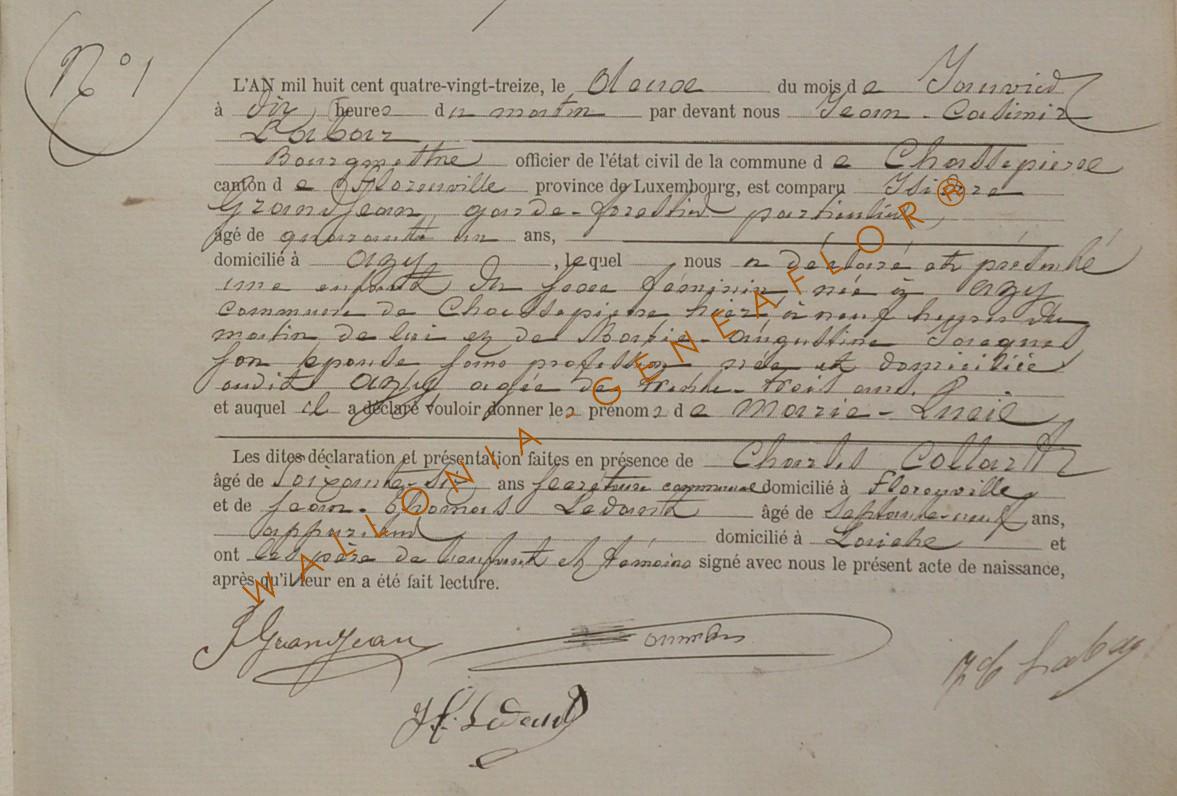 N° 1
L'AN mil huit cent quatre-vingt-treize, le onze du mois de Janvier
à dix heures du matin par devant nous Jean-Casimir
Labar
Bourgmestre officier de l'état civil de la commune de Chassepierre
canton de Florenville province de Luxembourg, est comparu Isidore
Grandjean, garde-forestier particulier,
âgé de quarante un ans,
domicilié à azy, lequel nous a déclaré et présenté
une enfant du sexe féminin née à azy
commune de Chassepierre hier, à neuf heures du
matin de lui et de Marie-Augustine
son épouse sans profession née et domiciliée
audit azy agée de trente-trois ans.
et auquel il a déclaré vouloir donner les prénoms de Marie-
Les dites déclaration et présentation faites en présence de Charles
âgé de soixante-six ans secrétaire communal domicilié à Florenville
et de Jean-Thomas Ledant âgé de septante-neuf ans,
domicilié à Laiche et
ont les père de l'enfant et témoins signé avec nous le présent acte de naissance,
après qu'il leur en a été fait lecture.
J Grandjean
J T. Ledant
J C Labar
WALLONIA-GENEAFLOR®